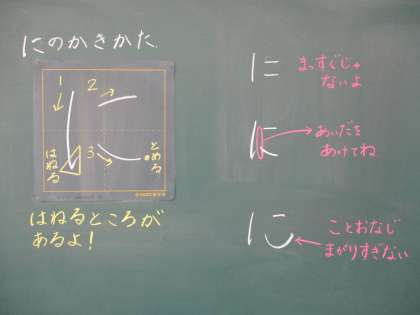 にのかきかた.
1
2
3
はねる
とめる
はねるところが
あるよ!
に
まっすぐじゃ
ないよ
に
あいだを
あけてね
に
ことおなじ
まがりすぎない